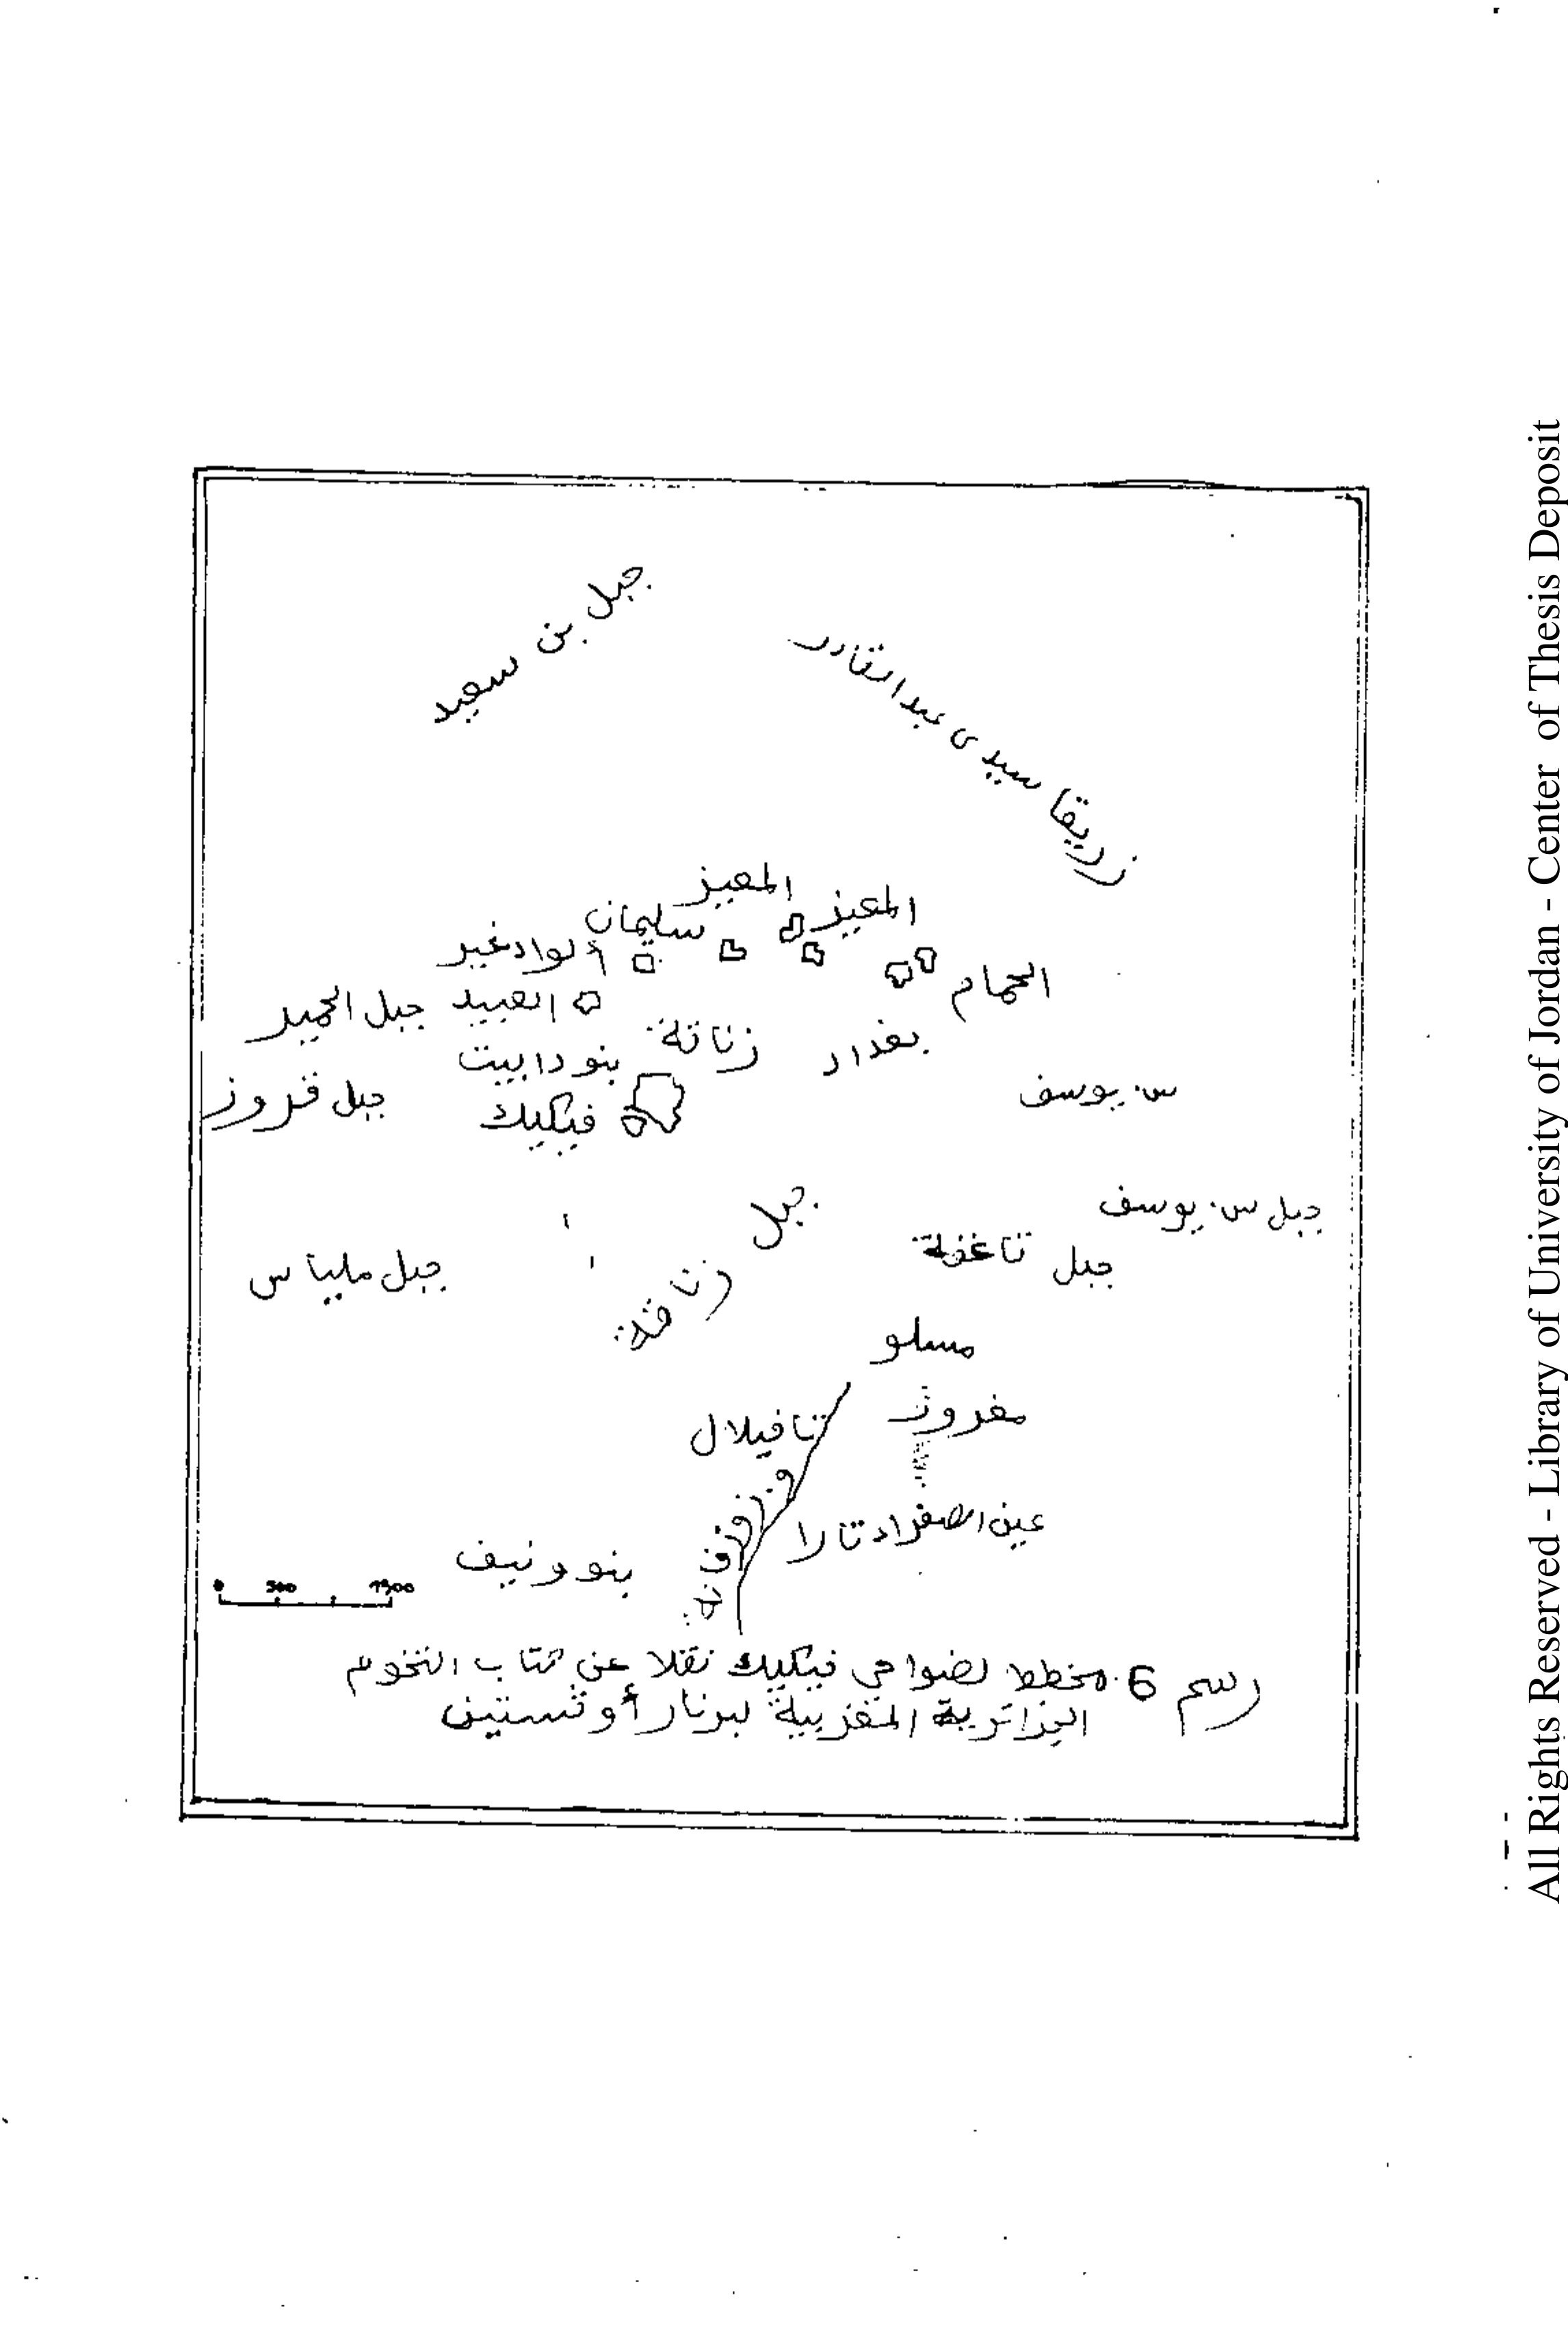 جبل بن سعيد
زريقا سيدي عبدالقادر
المعيز
المعيز
سليمان
ألوادغير
الحمام
العبيد
جبل الحميد
زناتة
بغداد
بنو دابيت
س. يوسف
جبل قروز
فيكيك
جبل س. يوسف
جبل تاغفة
جبل زناقة
جبل ملياس
مسلو
مغروز
تافيلال
عين الصفراد تارا
بنو ونيف
0 500 1500
رسم 6 مخطط لضواحي فيكيك نقلا عن كتاب التخوم
الجزائرية المغربية لبرنار أوتستين
All Rights Reserved - Library of University of Jordan - Center of Thesis Deposit